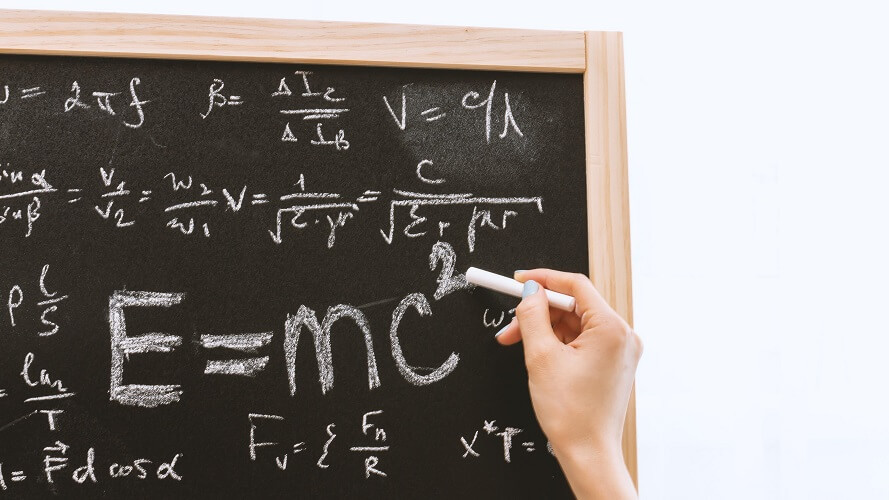 = 2πf β= ΔI_C/ΔI_B V = c/λ
sin α/sin β = v₁/v₂ = w₂/w₁ V = 1/√(ε·μ) = c/√(εr μr)
ρ l/S
E = mc²
ln₂/T
F_v = ξ F_n/R x*T=
= F⃗ d cos α